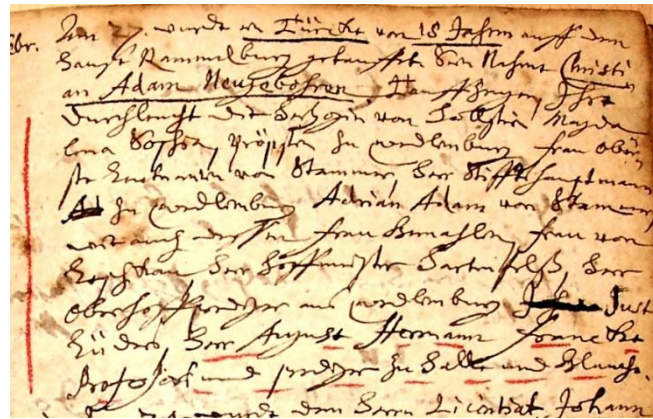 br. Den 27. wurdt ein Türcke von 18 Jahren auff dem
Hauß Rammelburg getaufft. Sein Nahme Christi
an Adam Neugebohren. Tauffzeugen, Ihre
Durchleucht die Hertzogin von Holstein Magda
lena Sophia, Pröpstin zu Qvedlenburg, Frau Obri
ste von Stammer, Herr Stiffts Hauptmann
zu Qvedlenburg Adrian Adam von Stammer
wie auch dessen Frau Gemahlin, Frau von
Herr Hoffmeister Hartenfelß, Herr
Oberhoffprediger aus Qvedlenburg Just
Lüders, Herr August Hermann Francke
Professor und prediger zu Halle und Glaucha.
wurdt dem Herrn Licentiat Johann